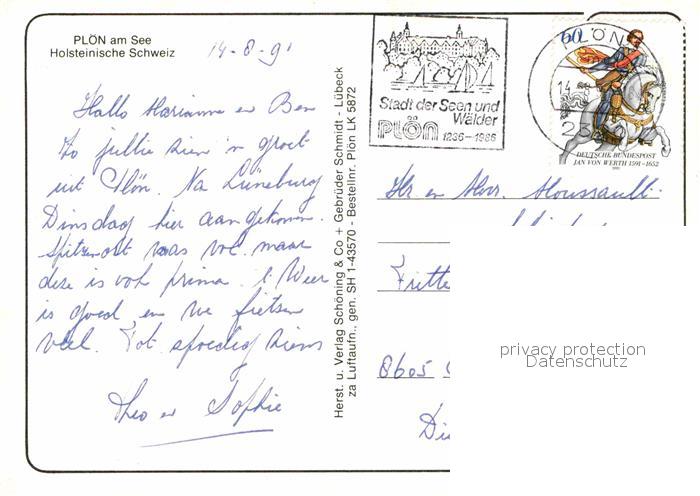 PLÖN am See
Holsteinische Schweiz
14-8-91
Hallo Marianne en Ben
Zo jullie zien 'n groet
uit Plön. Na Lüneburg
Dinsdag hier aangekomen.
Spitzenort was vol. maar
deze is ook prima. 't Weer
is goed en we fietsen
veel. Tot spoedig ziens
Theo en Sophie
Herst. u. Verlag Schöning & Co + Gebrüder Schmidt - Lübeck
za Luftaufn., gen. SH 1-43570 - Bestellnr. Plön LK 5872
Stadt der Seen und
Wälder
PLÖN 1236-1986
PLÖN
14
2
60
DEUTSCHE BUNDESPOST
JAN VON WERTH 1591-1652
1991
Hr en Mevr.
Fritz
8605
privacy protection
Datenschutz